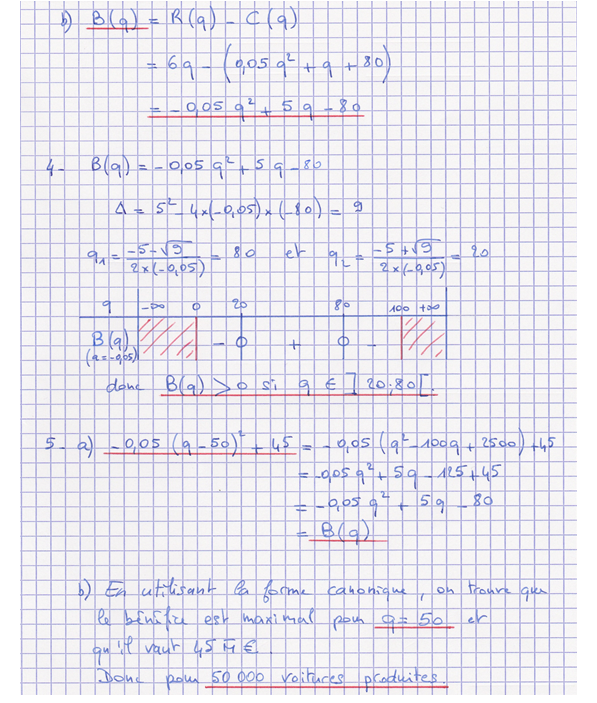 b) B(q) = R(q) - C(q)
= 6q - (0,05 q² + q + 80)
= -0,05 q² + 5 q - 80
4- B(q) = -0,05 q² + 5 q - 80
Δ = 5² - 4×(-0,05)×(-80) = 9
q₁ = (-5-√9)/(2×(-0,05)) = 80 et q₂ = (-5+√9)/(2×(-0,05)) = 20
q -∞ 0 20 80 100 +∞
B(q) - 0 + 0 -
(a=-0,05)
donc B(q) > 0 si q ∈ ]20;80[.
5- a) -0,05 (q-50)² + 45 = -0,05 (q² - 100q + 2500) + 45
= -0,05 q² + 5 q - 125 + 45
= -0,05 q² + 5 q - 80
= B(q)
b) En utilisant la forme canonique, on trouve que
le bénéfice est maximal pour q = 50 et
qu'il vaut 45 M €.
Donc pour 50 000 voitures produites.